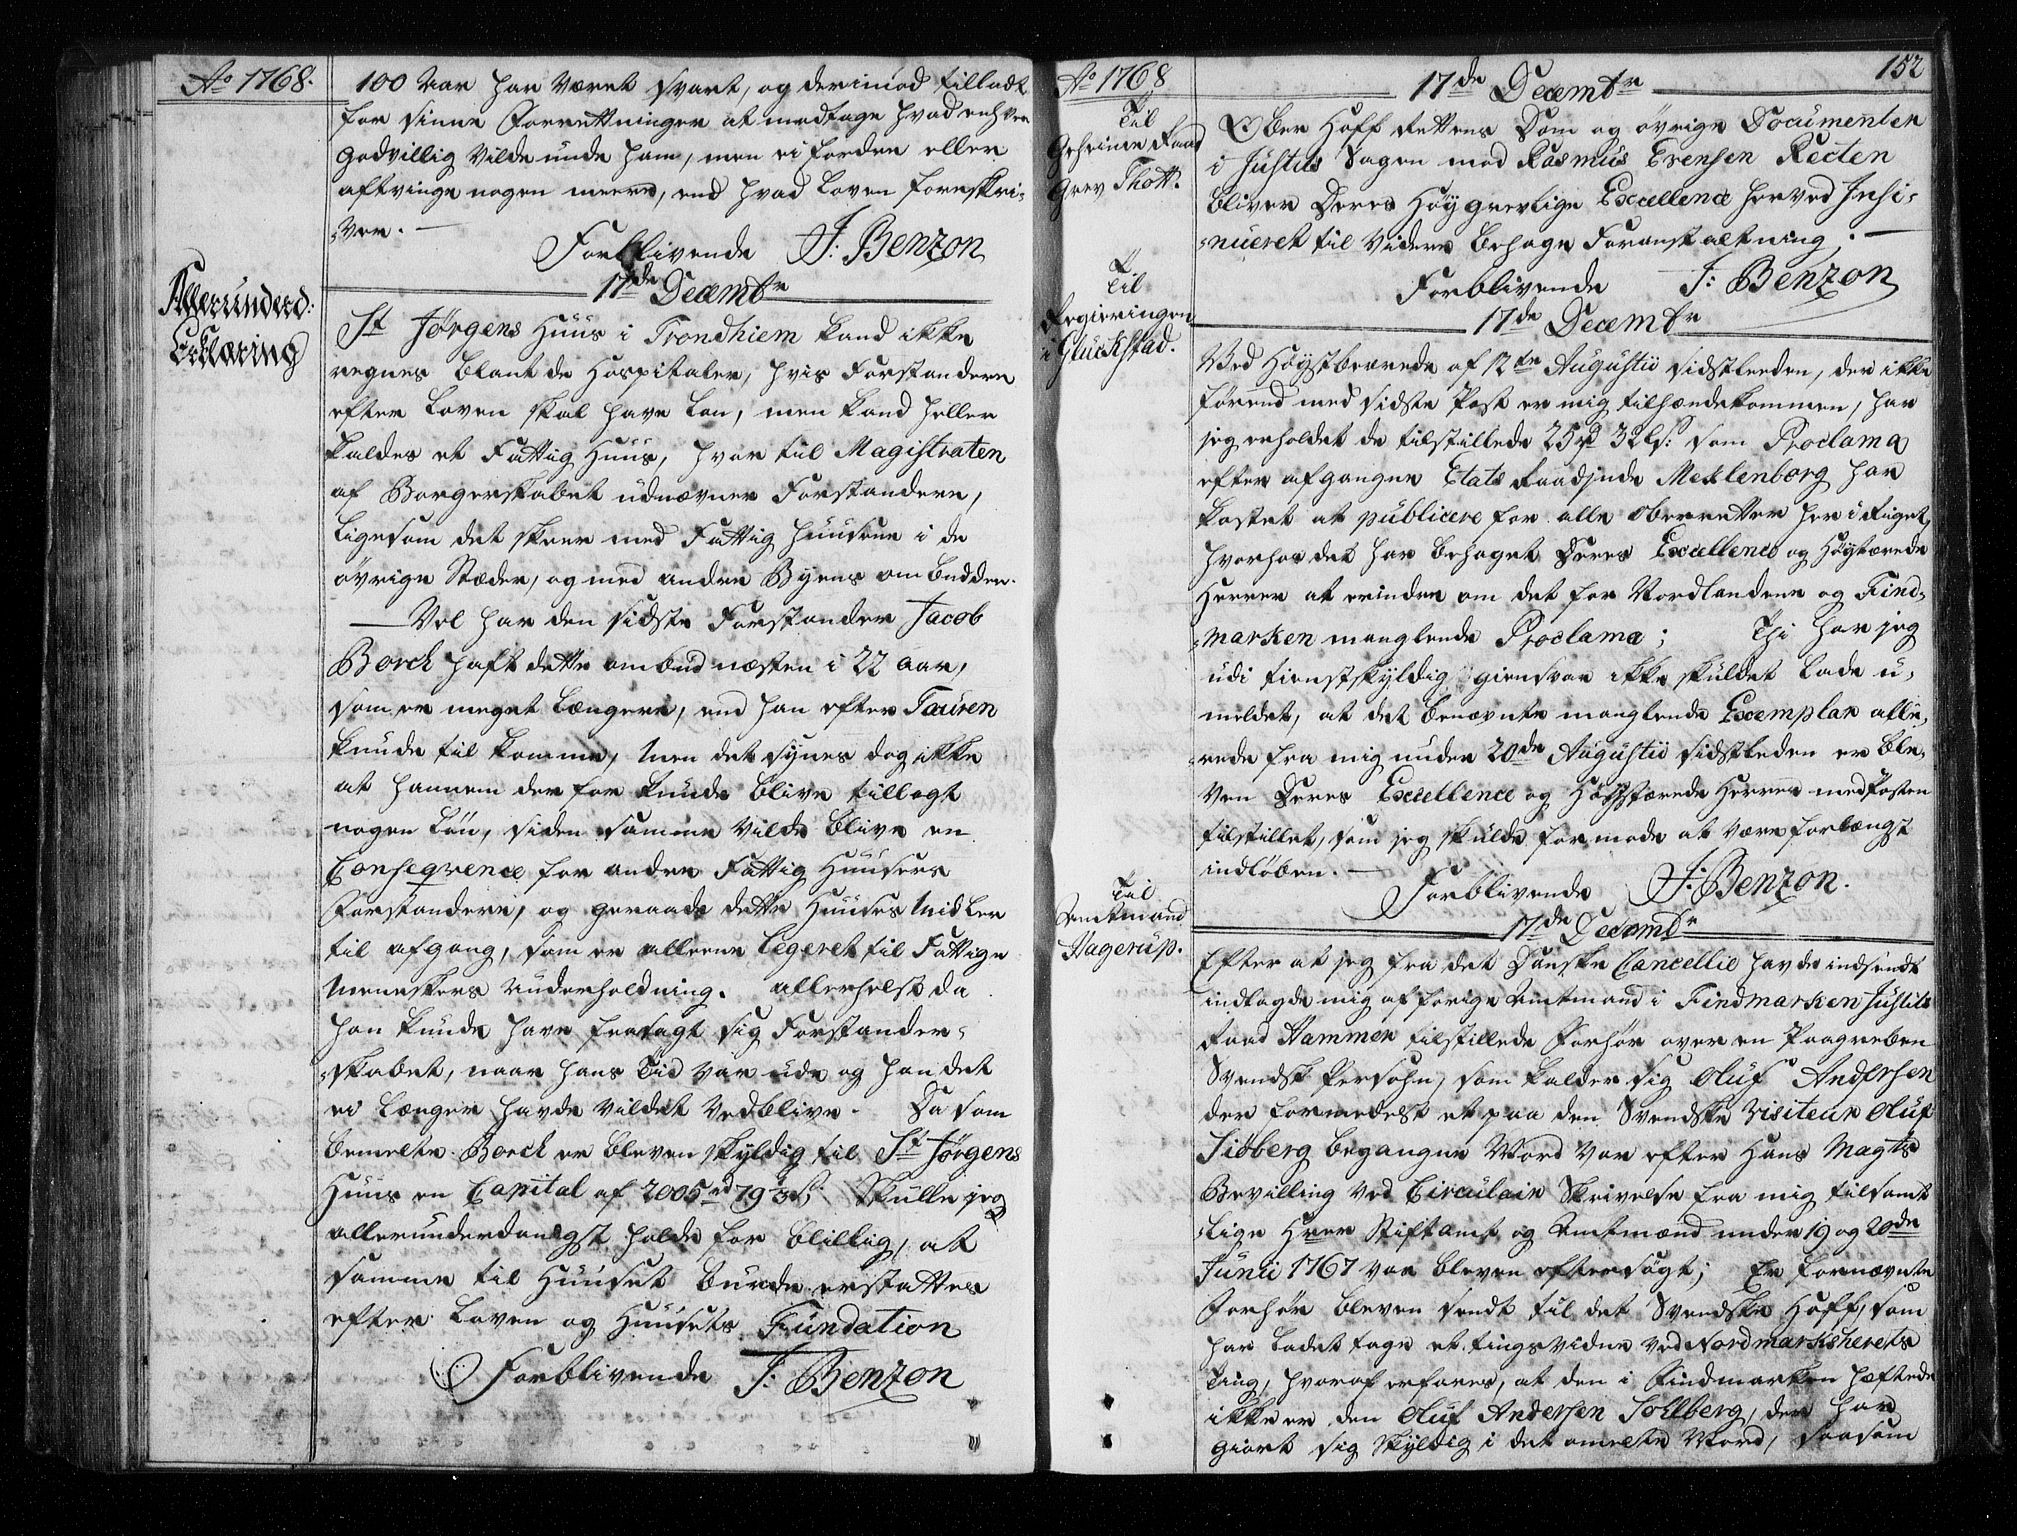 Ao 1768.
100 Aar har været svart, og derimod tilladt
for sinne Forretninger at modtage hvad enhver
godvillig vilde unde ham, men ei fordre eller
aftvinge nogen meere, end hvad Loven foreskri-
-ver. —
Forblivende J: Benzon
17de Decembr
Allerunderd:
Erklæring
St Jørgens Huus i Trondhiem kand ikke
regnes blant de Hospitaler, hvis Forstandere
efter Loven skal have Løn, men kand heller
kaldes et Fattig Huus, hvor til Magistraten
af Borgerskabet udnævner Forstandere,
ligesom det skeer med Fattig Huusene i de
øvrige Stæder, og med andre Byens ombudder.
— Vel har den sidste Forstander Jacob
Borch haft dette ombud næsten i 22 aar,
som er meget længere, end han efter Touren
kunde til komme, Men det synes dog ikke
at hannem der for kunde blive tillagt
nogen Løn, siden samme vilde blive en
Conseqvence for andre Fattig Huusers
Forstandere, og geraade dette Huuses Midler
til afgang, som er alleene legeret til Fattige
Menneskers Underholdning. allerhelst da
han kunde have frasagt sig Forstander-
-skabet, naar hans Tid var ude og han det
ei længer havde vildet vedblive. Da som
bemelte Borch er bleven skyldig til St Jørgens
Huus en Capital af 2005rd 79⅓s, Skulle jeg
allerunderdanigst holde for billig, at
samme til Huuset burde erstattes
efter Loven og Huusets Fundation
Forblivende J: Benzon
Ao 1768
17de Decembr
152
Til
Geheime Raad
Grev Thott.
Ober Hoff Rettens Dom og øvrige Documenter
i Justits Sagen mod Rasmus Evensen Recten
bliver Deres Høygrevlige Excellence herved Insi-
-nueret til videre behage Foranstaltning. —
Forblivende J: Benzon
17de Decembr
Til
Regieringen
i Glückstad.
Med Høystbeærede af 12te Augustii sidstleeden, der ikke
førend med sidste Post er mig tilhændekommen, har
jeg erholdet de tilstillede 25rd 32s: som Proclama
efter afgangne Etats Raadinde Meklenborg har
kostet at publicere for alle Oberretter her i Riget,
hvorhos det har behaget Deres Excellence og Høytærede
Herrer at erindre om det for Nordlandene og Find-
-marken manglende Proclama; Thi har jeg
udi tienstskyldig giensvar ikke skuldet lade u-
meldet, at det benævnte manglende Exemplar alle-
-rede fra mig under 20de Augustii sidstleden er ble-
ven Deres Excellence og Høystærede Herrer med Posten
tilstillet, som jeg skulde formode at være forlængst
indløben. —
Forblivende J: Benzon.
17de Decembr
Til
Amtmand
Hagerup.
Efter at jeg fra det Danske Cancellie havde indsendt
indtagde mig af forige Amtmand i Findmarken Justits
Raad Hammer tilstillede Forhør over en Paagreben
Svensk Persohn, som kalder sig Oluf Andersen
der formedelst et paa den Svenske Visiteur Oluf
Sioberg begangne Mord var efter Hans Mayts
Bevilling ved Circulair Skrivelse fra mig tilsamt-
-lige Hrer Stiftamt og Amtmænd under 19 og 20de
Junii 1767 var bleven eftersøgt; Er fornævnte
Forhør bleven sendt til det Svenske Hoff, som
har ladet tage et tingsvidne ved Nordmarksherets
Ting, hvoraf erfares, at den i Findmarken hæftede
ikke er den Oluf Andersen Sohlberg, der har
giort sig skyldig i det omelte Mord, saasom